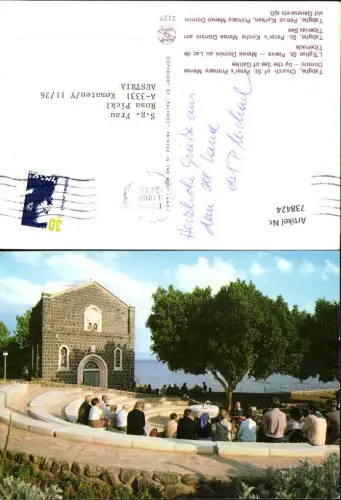 Tabgha, Church of St. Peter's Primacy Mensa
Domini - by the Sea of Galilee
L'Eglise St. - Pierre - Mensa Domini au Lac de
Tiberiade
Tabgha, St. Peter's Kirche Mensa Domini am
Tiberias See
Tabgha, Petrus Kyrkan, Primacy Mensa Domini
vid Genesarets sjö.
2127
S.g. Frau
Rosa Pickl
A-3331 Kematen/Y 11/26
AUSTRIA
Herzliche Grüße aus
dem Hl Land
P. Michael
30
Artikel Nr.
738424